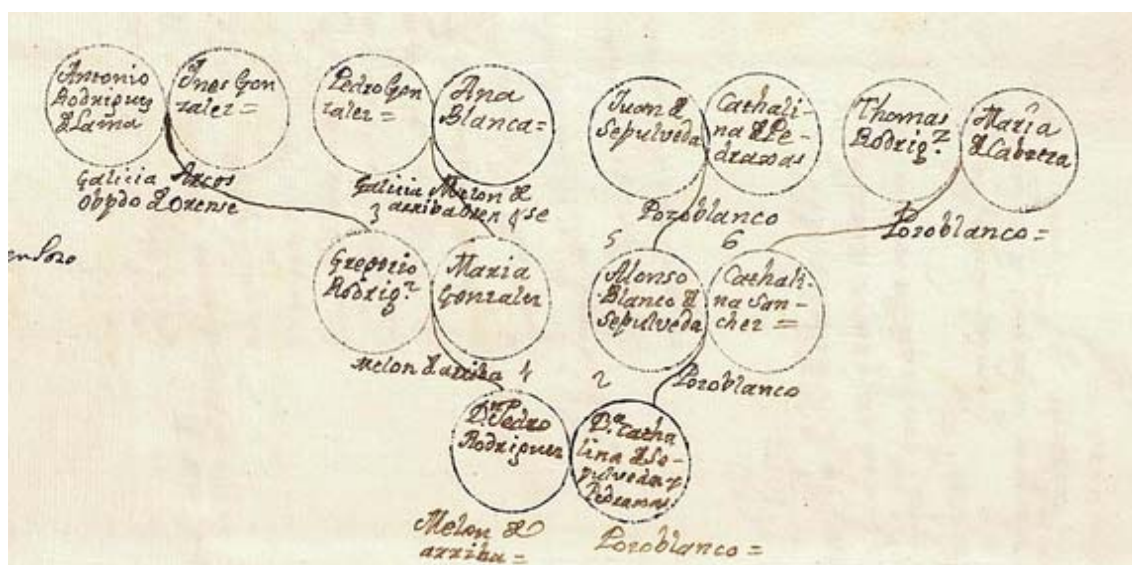 Antonio
Rodriguez
de Laiña
Ines Gon
zalez =
Pedro Gon
zalez =
Ana
Blanca =
Juan de
Sepulveda
Cathali-
na de Pe-
draxas
Thomas
Rodrig.z
Maria
de Cabrera
Galicia Arcos
Obpdo de Orense
Galicia Melon de
arriba Oren se
Pozoblanco
Pozoblanco =
3
4
5
6
Gregorio
Rodrig.z
Maria
Gonzalez
Alonso
Blanco de
Sepulveda
Cathali-
na San-
chez =
Melon de arriba
1
2
Pozoblanco
D.n Pedro
Rodriguez
D.a Catha
lina de Se-
pulveda y
Pedraxas
Melon de
arriba =
Pozoblanco =